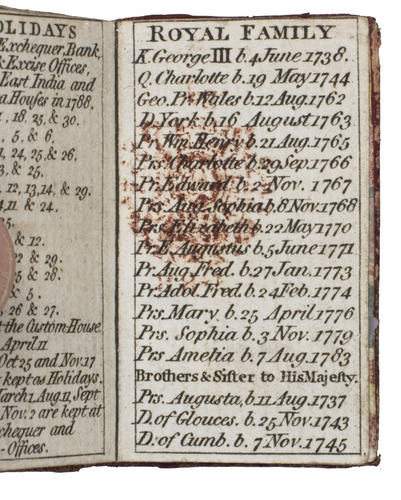 OLIDAYS
Exchequer, Bank,
& Excise Offices,
East India and
a Houses in 1788.
1, 18, 25, & 30.
5, & 6.
1, 24, 25, & 26,
3, & 25.
12, 13, 14, & 29.
4, 11 & 24.
25.
& 12.
2 & 29.
25 & 28.
& 5.
, 26 & 27.
t the Custom House.
April 11
Oct 25 and Nov. 17
kept as Holidays.
March 1. Aug 11, Sept
Nov. 2 are kept at
chequer and
- Offices.
ROYAL FAMILY
K. George III b. 4 June 1738.
Q. Charlotte b. 19 May 1744
Geo. Pr. Wales b. 12 Aug. 1762
D. York b. 16 August 1763
Pr. Wm. Henry b. 21 Aug. 1765
Prs. Charlotte b. 29 Sep. 1766
Pr. Edward b. 2 Nov. 1767
Prs. Aug. Sophia b. 8 Nov. 1768
Prs. Elizabeth b. 22 May 1770
Pr. E. Augustus b. 5 June 1771
Pr. Aug. Fred. b. 27 Jan. 1773
Pr. Adol. Fred. b. 24 Feb. 1774
Prs. Mary b. 25 April 1776
Prs. Sophia b. 3 Nov. 1779
Prs Amelia b. 7 Aug. 1783
Brothers & Sister to His Majesty.
Prs. Augusta, b. 11 Aug. 1737
D. of Glouces. b. 25 Nov. 1743
D. of Cumb. b. 7 Nov. 1745